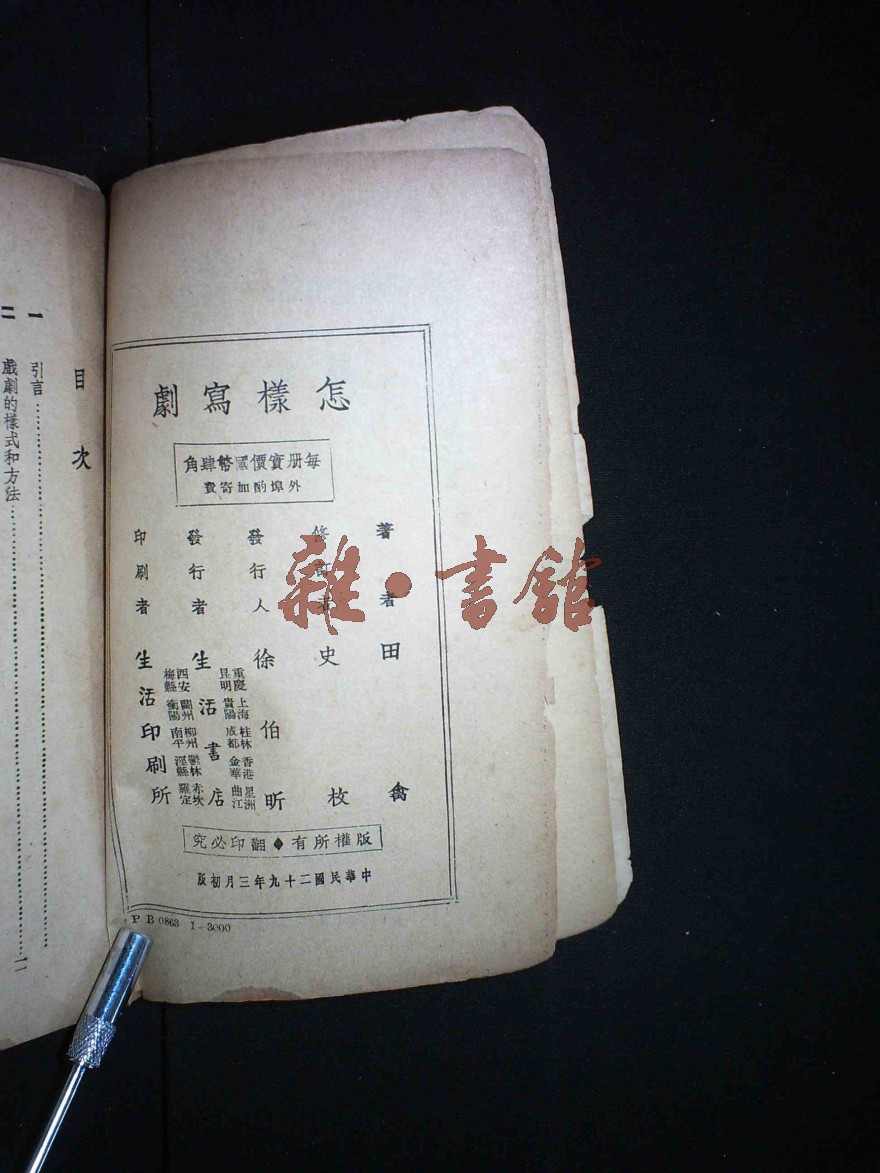 怎樣寫劇
每册實價國幣肆角
外埠酌加寄費
著者 田禽
修訂者 史枚
發行人 徐伯昕
發行者 生活書店
重慶 上海 桂林 香港 星洲
昆明 貴陽 成都 金華 曲江
西安 蘭州 柳州 鬱林 赤坎
梅縣 衡陽 南平 涇縣 羅定
印刷者 生活印刷所
版權所有◆翻印必究
中華民國二十九年三月初版
P B 0863 1-3000
目次
一 引言
二 戲劇的樣式和方法
雜·書館